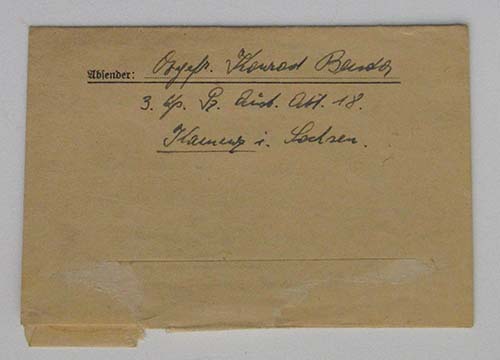 Absender: Ogefr. Konrad Benda
3. Kp. Pz. Aufkl. Abt. 18.
Kamenz i. Sachsen.